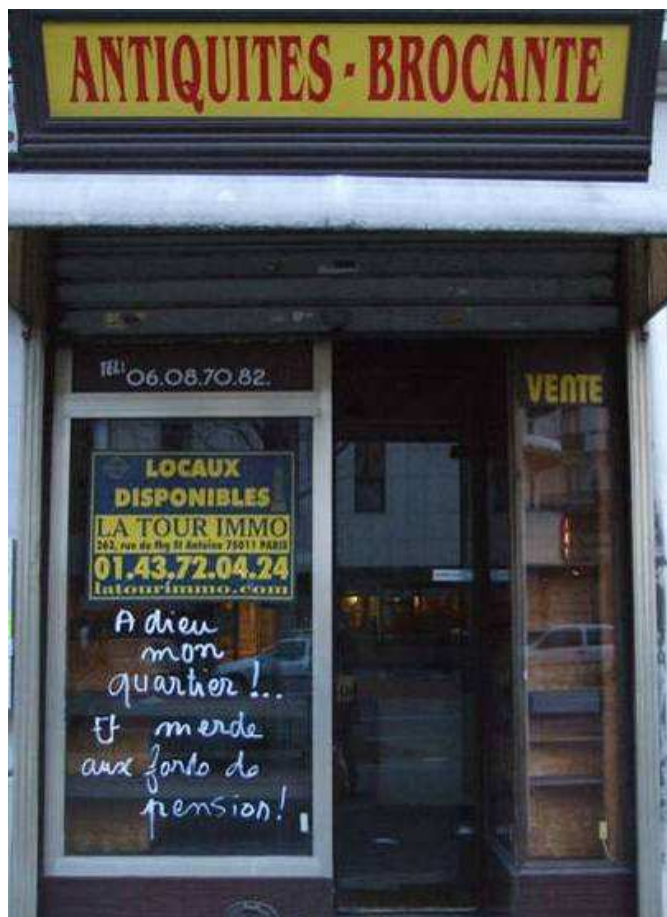 ANTIQUITES - BROCANTE
TEL: 06.08.70.82.
VENTE
LOCAUX
DISPONIBLES
LA TOUR IMMO
262, rue du Fbg St Antoine 75011 PARIS
01.43.72.04.24
latourimmo.com
Adieu
mon
quartier !..
Et merde
aux fonds de
pension!